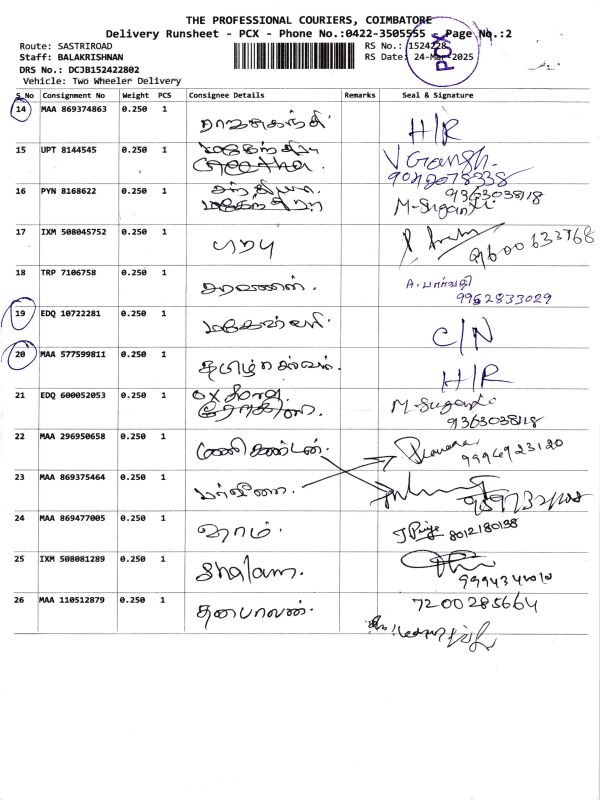 THE PROFESSIONAL COURIERS, COIMBATORE
Delivery Runsheet - PCX - Phone No.:0422-3505555 - Page No.:2
Route: SASTRIROAD
RS No.: 1524228
Staff: BALAKRISHNAN
RS Date: 24-Mar-2025
PCX
DRS No.: DCJB152422802
Vehicle: Two Wheeler Delivery
S No Consignment No Weight PCS Consignee Details Remarks Seal & Signature
14 MAA 869374863 0.250 1 H/R
15 UPT 8144545 0.250 1 Geetha
16 PYN 8168622 0.250 1 M-Suganthi 9363038118
17 IXM 508045752 0.250 1 பிரபு 9600633768
18 TRP 7106758 0.250 1 சரவணன். A. பார்வதி
9962833029
19 EDQ 10722281 0.250 1 மகேஸ்வரி C/N
20 MAA 577599811 0.250 1 தமிழ்செல்வன். H/R
21 EDQ 600052053 0.250 1 M-Suganthi
9363038118
22 MAA 296950658 0.250 1 மணிகண்டன். 9994923120
23 MAA 869375464 0.250 1 பர்வீனா.
24 MAA 869477005 0.250 1 ஷாம். J Priya 8012180138
25 IXM 508081289 0.250 1 Shalam.
26 MAA 110512879 0.250 1 தனபாலன். 7200285664